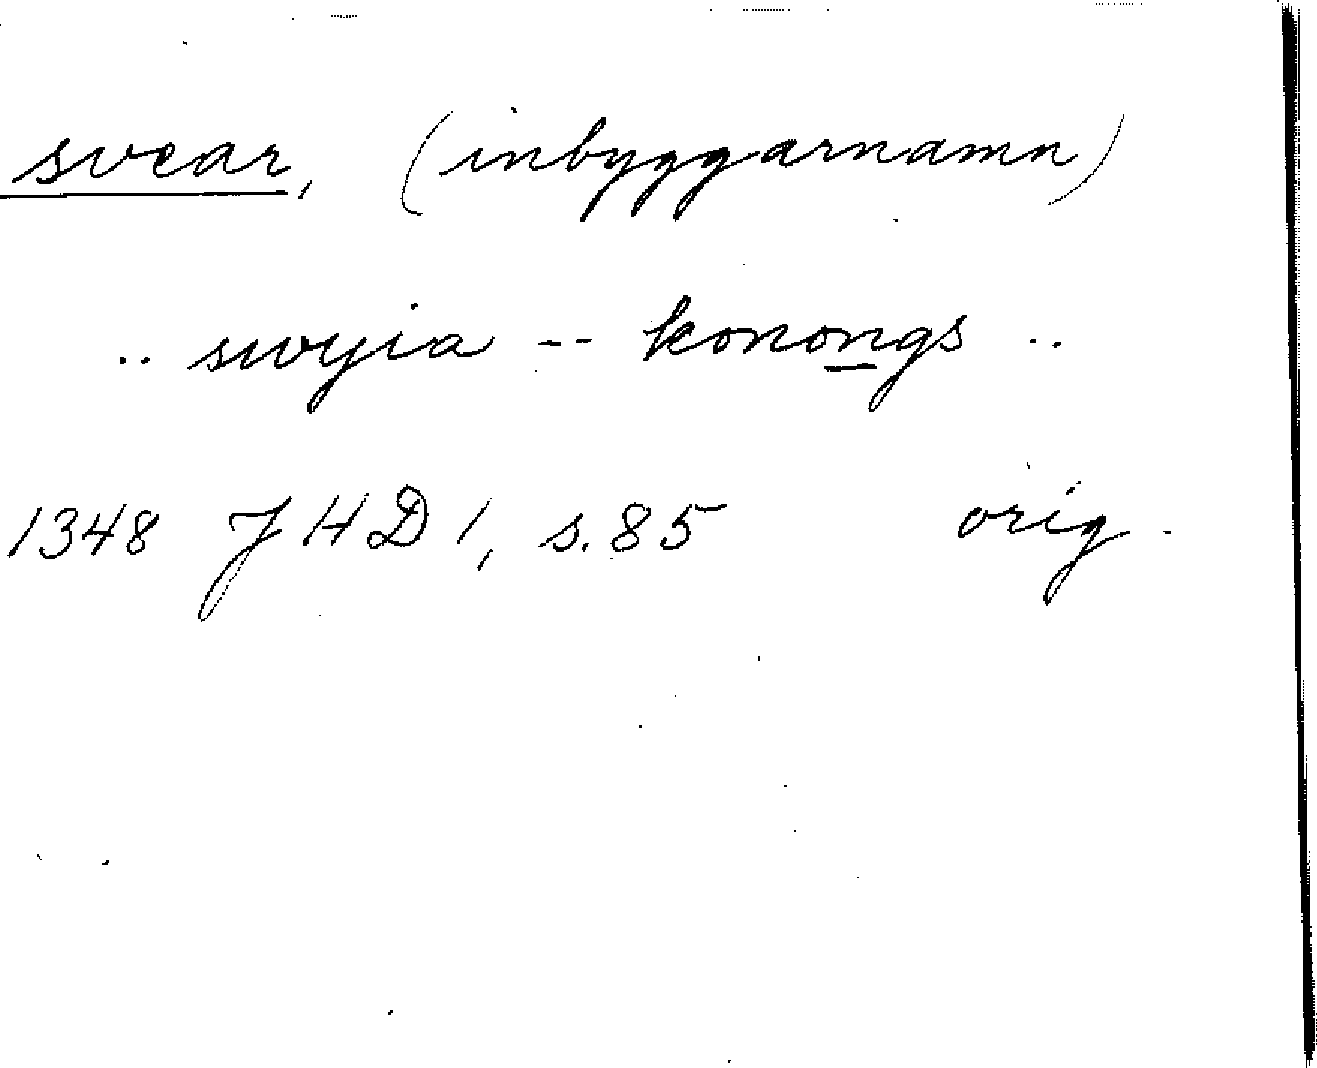 svear, (inbyggarnamn)
.. swyia -- konongs ..
1348 JHD 1, s. 85 orig.